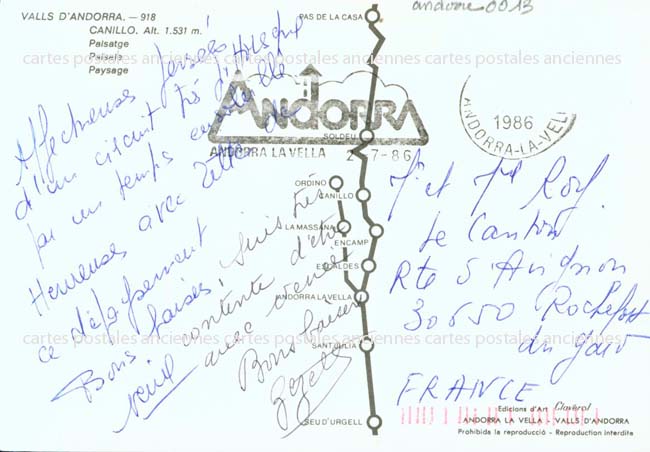 VALLS D'ANDORRA. – 918
CANILLO. Alt. 1.531 m.
Paisatge
Paisaje
Paysage
andorre 0013
cartes postales anciennes cartes postales anciennes cartes postales anciennes cartes postales anciennes
Affectueuses pensées
d'un circuit très
par un temps
Heureuse avec
ce dépaysement
Bons baisers
suis très
contente d'être
avec
Bons baisers
ANDORRA
ANDORRA LA VELLA 2-7-86
1986
ANDORRA-LA-VELLA
PAS DE LA CASA
SOLDEU
ORDINO
CANILLO
LA MASSANA
ENCAMP
ESCALDES
ANDORRA LA VELLA
SANT JULIA
SEU D'URGELL
et Roy
Le Cantou
Rte d'Avignon
30650 Rochefort
du gard
FRANCE
cartes postales anciennes cartes postales anciennes cartes postales anciennes cartes postales anciennes
Edicions d'Art Claverol
ANDORRA LA VELLA - VALLS D'ANDORRA
Prohibida la reproducció - Reproduction interdite